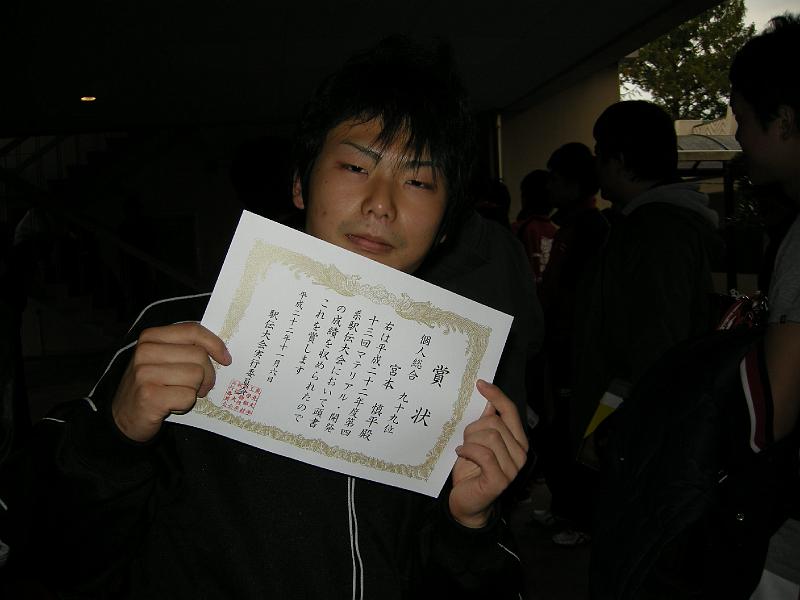 賞状
個人総合 九十九位
宮本 慎平殿
右は平成二十二年度第四
十三回マテリアル・開発
系駅伝大会において頭書
の成績を収められたので
これを賞します
平成二十二年十一月六日
駅伝大会実行委員会